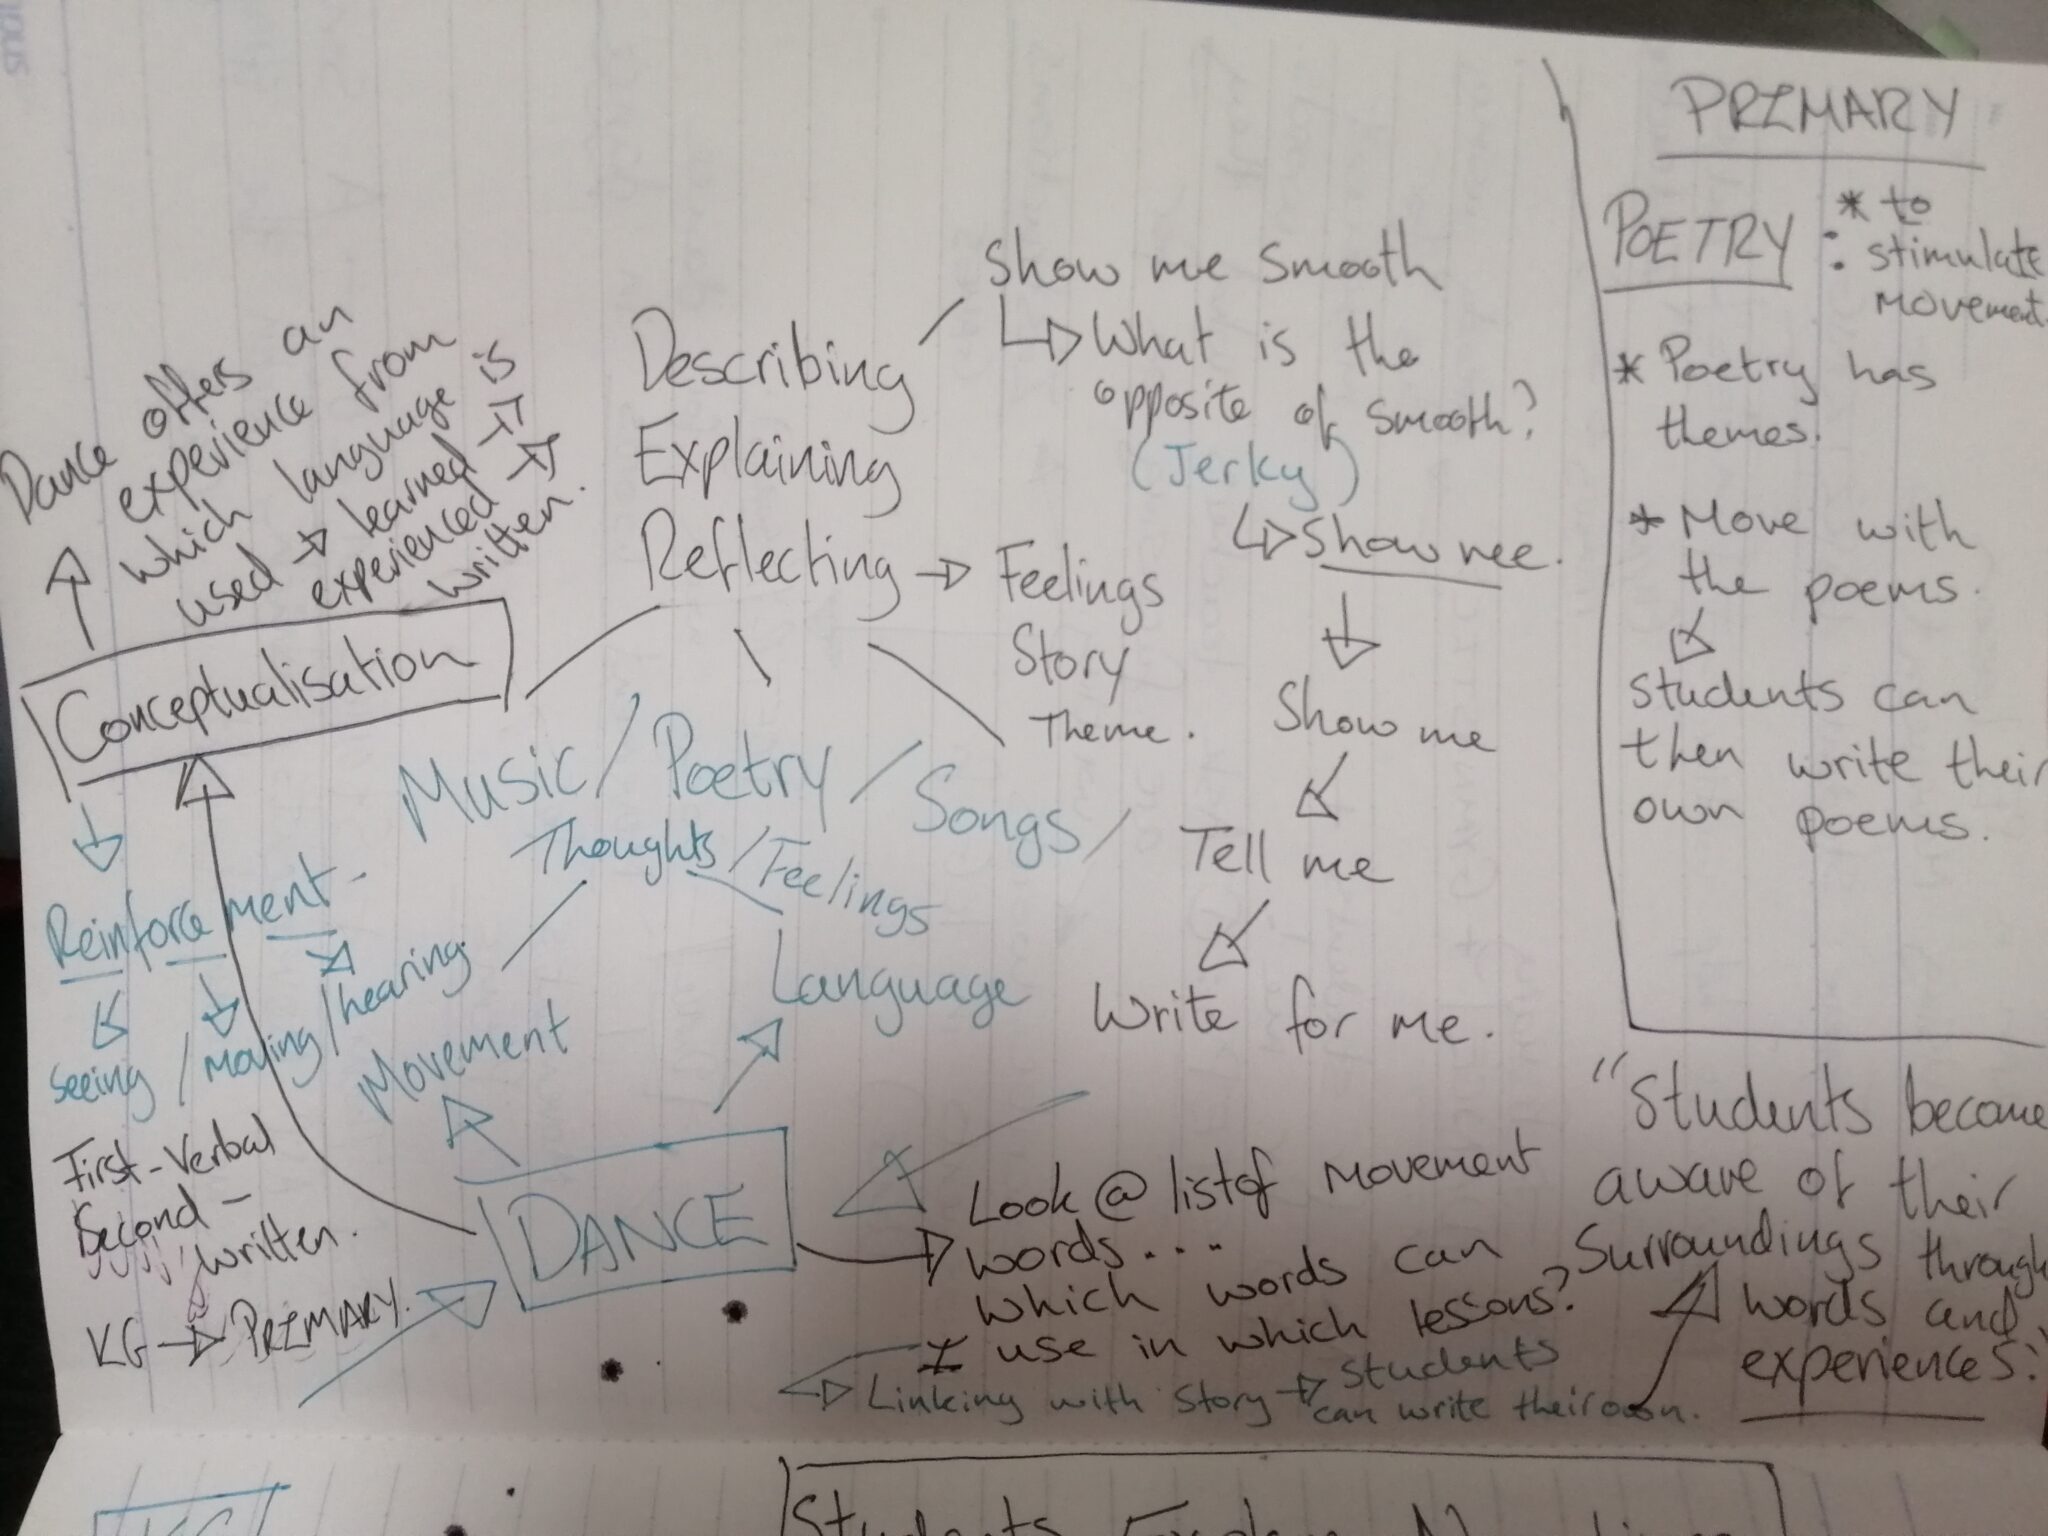 Dance offers an
experience from
which language is
used → learned →
experienced →
written.
Conceptualisation
Describing
Explaining
Reflecting → Feelings
Story
Theme.
Show me smooth
What is the
opposite of smooth?
(Jerky)
Show me.
Show me
Tell me
Write for me.
Music / Poetry / Songs /
Thoughts / Feelings
Language
Movement
Reinforcement -
seeing / moving / hearing
First - Verbal
Second -
written.
KG → PRIMARY.
DANCE
Look @ list of movement
words....
which words can
I use in which lessons?
Linking with story → students
can write their own.
PRIMARY
POETRY : * to
stimulate
movement
* Poetry has
themes.
* Move with
the poems.
students can
then write their
own poems.
"Students become
aware of their
surroundings through
words and
experiences."
Students